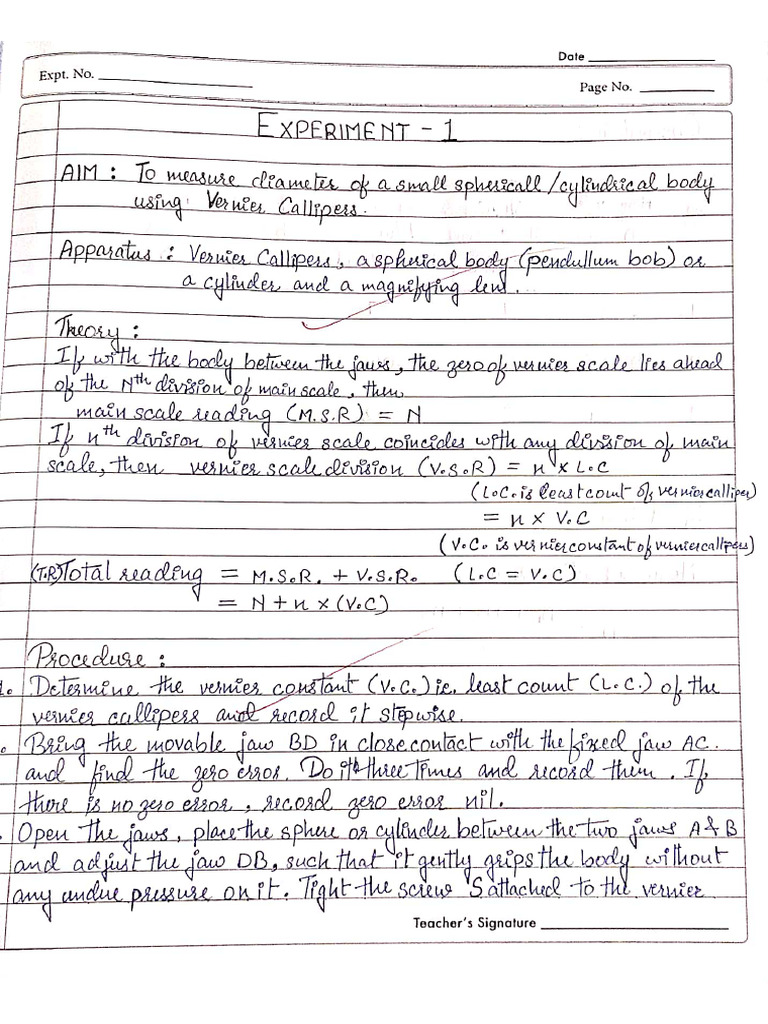 Date
Expt. No.
Page No.
EXPERIMENT - 1
AIM : To measure diameter of a small sphericall /cylindrical body
using Vernier Callipers.
Apparatus : Vernier Callipers, a spherical body (pendullum bob) or
a cylinder and a magnifying lens.
Theory :
If with the body between the jaws, the zero of vernier scale lies ahead
of the Nth division of main scale, then
main scale reading (M.S.R) = N
If nth division of vernier scale coincides with any division of main
scale, then vernier scale division (V.S.R) = n x L.C
(L.C. is least count of vernier calliper)
= n x V.C
(V.C. is vernier constant of vernier callipers)
(T.R) Total reading = M.S.R. + V.S.R. (L.C = V.C)
= N + n x (V.C)
Procedure :
1. Determine the vernier constant (V.C.) ie. least count (L.C.) of the
vernier callipers and record it stepwise.
. Bring the movable jaw BD in close contact with the fixed jaw AC.
and find the zero error. Do it three times and record them. If
there is no zero error, record zero error nil.
. Open the jaws, place the sphere or cylinder between the two jaws A & B
and adjust the jaw DB, such that it gently grips the body without
any undue pressure on it. Tight the screw S attached to the vernier
Teacher's Signature